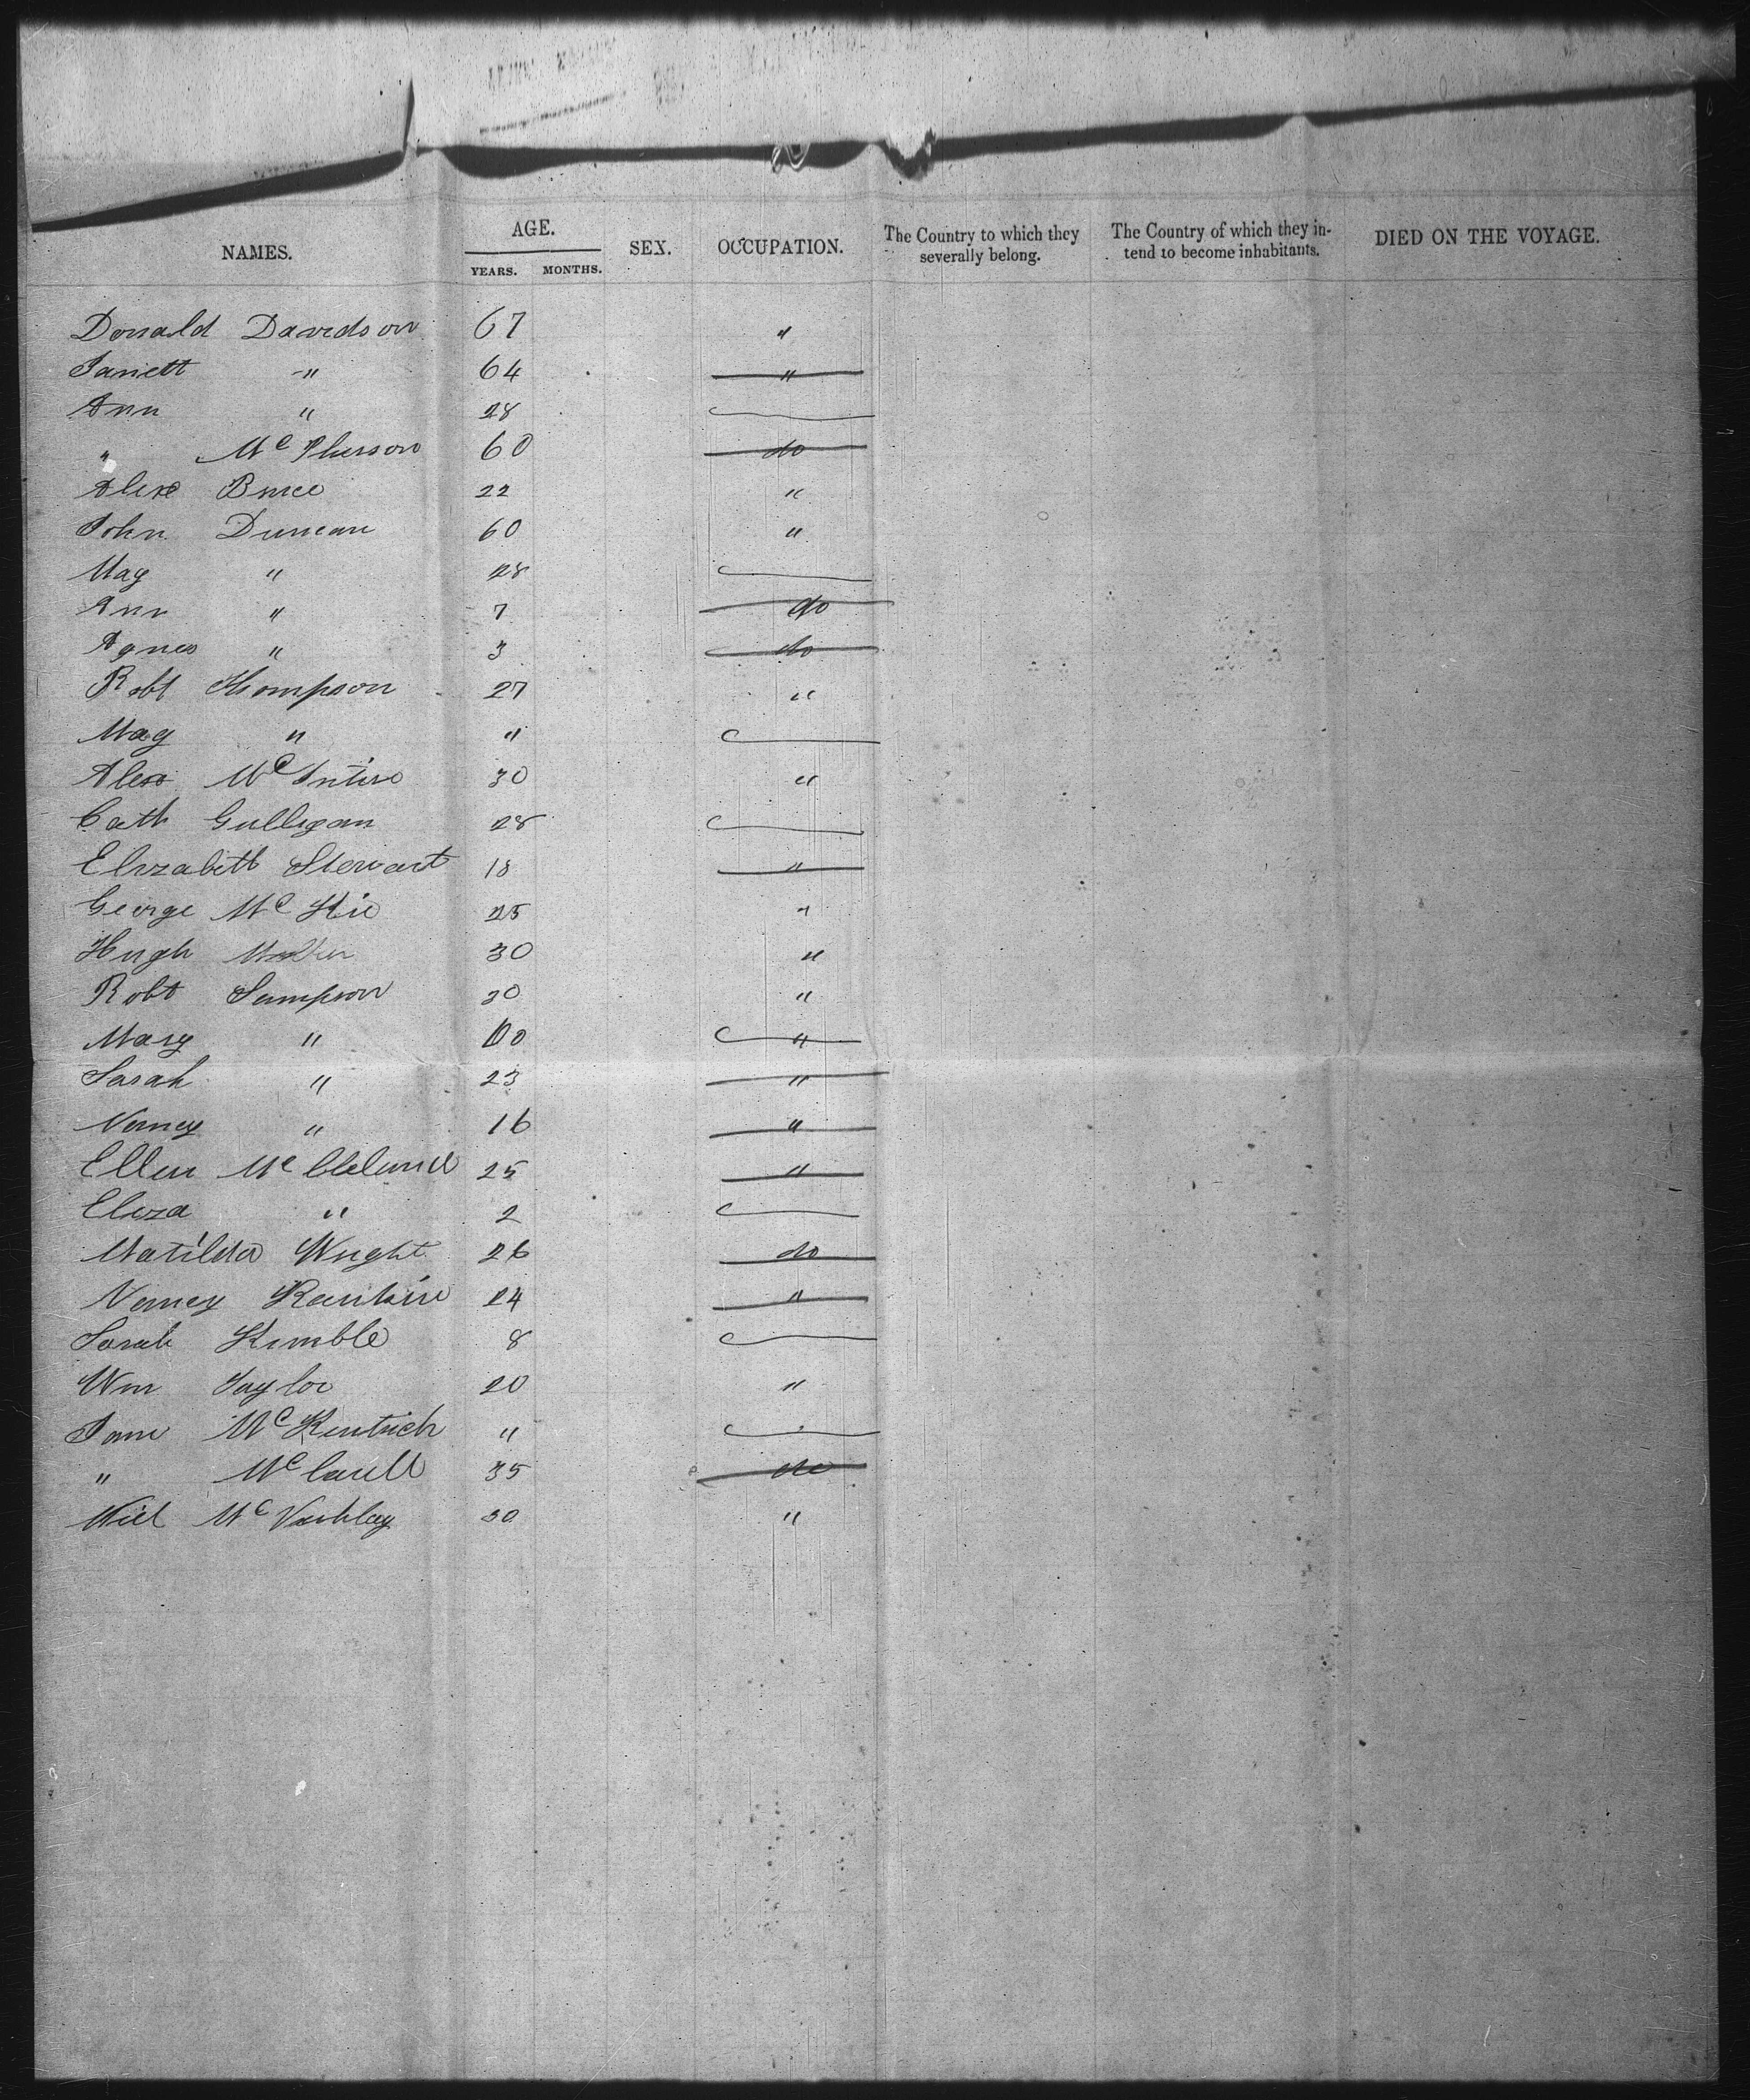 NAMES. AGE. YEARS. MONTHS. SEX. OCCUPATION. The Country to which they severally belong. The Country of which they intend to become inhabitants. DIED ON THE VOYAGE.
Donald Davidson 67 "
Janett " 64 "
Ann " 28
" Mc Pherson 60 do
Alex Bruce 22 "
John Duncan 60 "
Mag " 28
Ann " 7 do
Agnes " 3 do
Robt Thompson 27 "
Mag " "
Alex McIntire 30 "
Cath Gulligan 28
Elizabeth Stewart 18 "
George Mc Kie 25 "
Hugh 30 "
Robt Sampson 30 "
Mary " "
Sarah " 23 "
Nancy " 16 "
Ellen Mc Cleland 25 "
Eliza " 2
Matilda Wright 26 do
Nancy Rankin 24 "
Sarah Kimble 8
Wm Taylor 20 "
Jane "
" 35 do
30 "